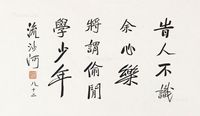 旹人不識
余心樂
將謂偷閒
學少年
流沙河